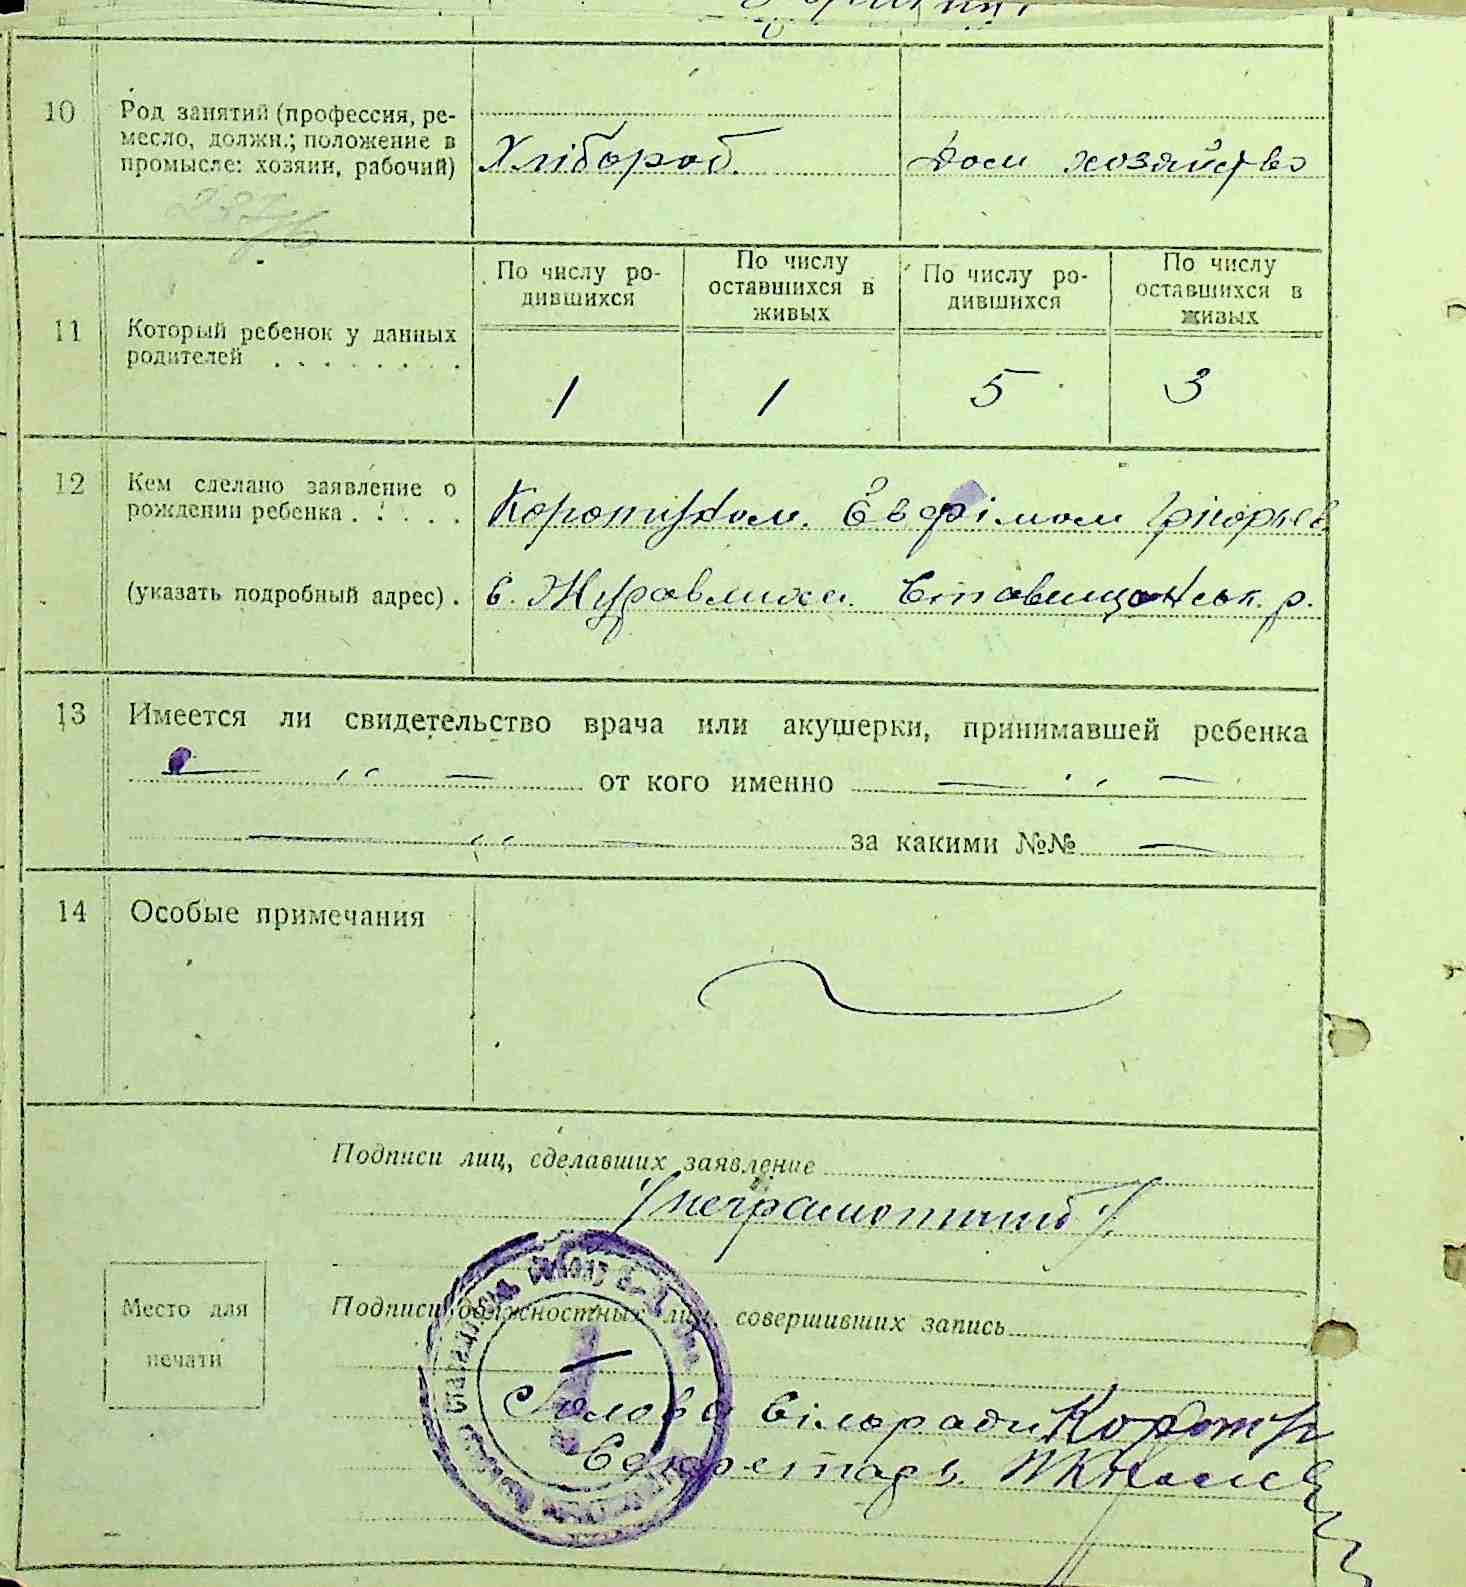 10 Род занятий (профессия, ре-
месло, должн.; положение в
промысле: хозяин, рабочий)
Хлібороб. Дом хозяйство
11 Который ребенок у данных
родителей . . . . . . . .
По числу ро-
дившихся
По числу
оставшихся в
живых
По числу ро-
дившихся
По числу
оставшихся в
живых
1 1 5 3
12 Кем сделано заявление о
рождении ребенка . . . . .
(указать подробный адрес) .
Евфімом Григорьев
с. Журавлиха Ставищанськ. р.
13 Имеется ли свидетельство врача или акушерки, принимавшей ребенка
— " — от кого именно — " —
— " — за какими №№ —
14 Особые примечания
Подписи лиц, сделавших заявление
/неграмотний/.
Место для
печати
Подписи должностных лиц, совершивших запись
Голова сільради
Секретарь